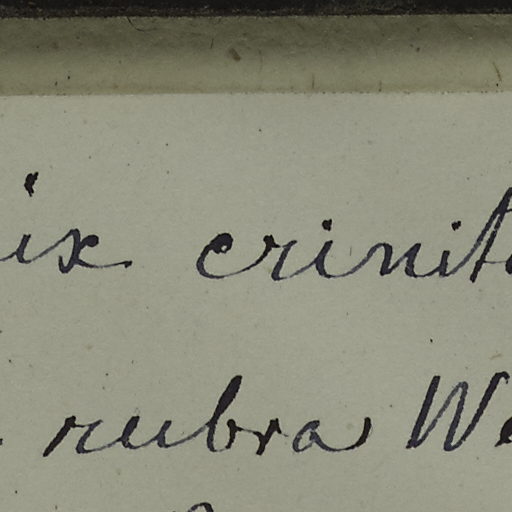 ix crinit
rubra W